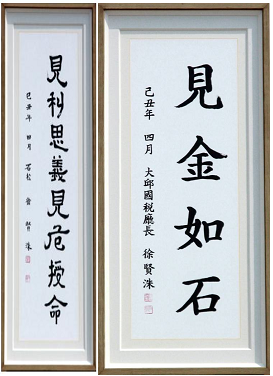 見金如石
己丑年 四月 大邱國稅廳長 徐賢洙
見利思義見危授命
己丑年 四月 若松 徐賢洙